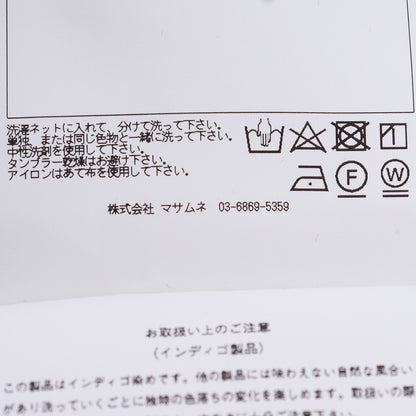 洗濯ネットに入れて、分けて洗って下さい。
単独、または同じ色物と一緒に洗って下さい。
中性洗剤を使用して下さい。
タンブラー乾燥はお避け下さい。
アイロンはあて布を使用して下さい。
F
W
株式会社 マサムネ 03-6869-5359
お取扱い上のご注意
(インディゴ製品)
この製品はインディゴ染めです。他の製品には味わえない自然な風合い
があり洗っていくごとに独特の色落ちの変化を楽しめます。取扱いの際